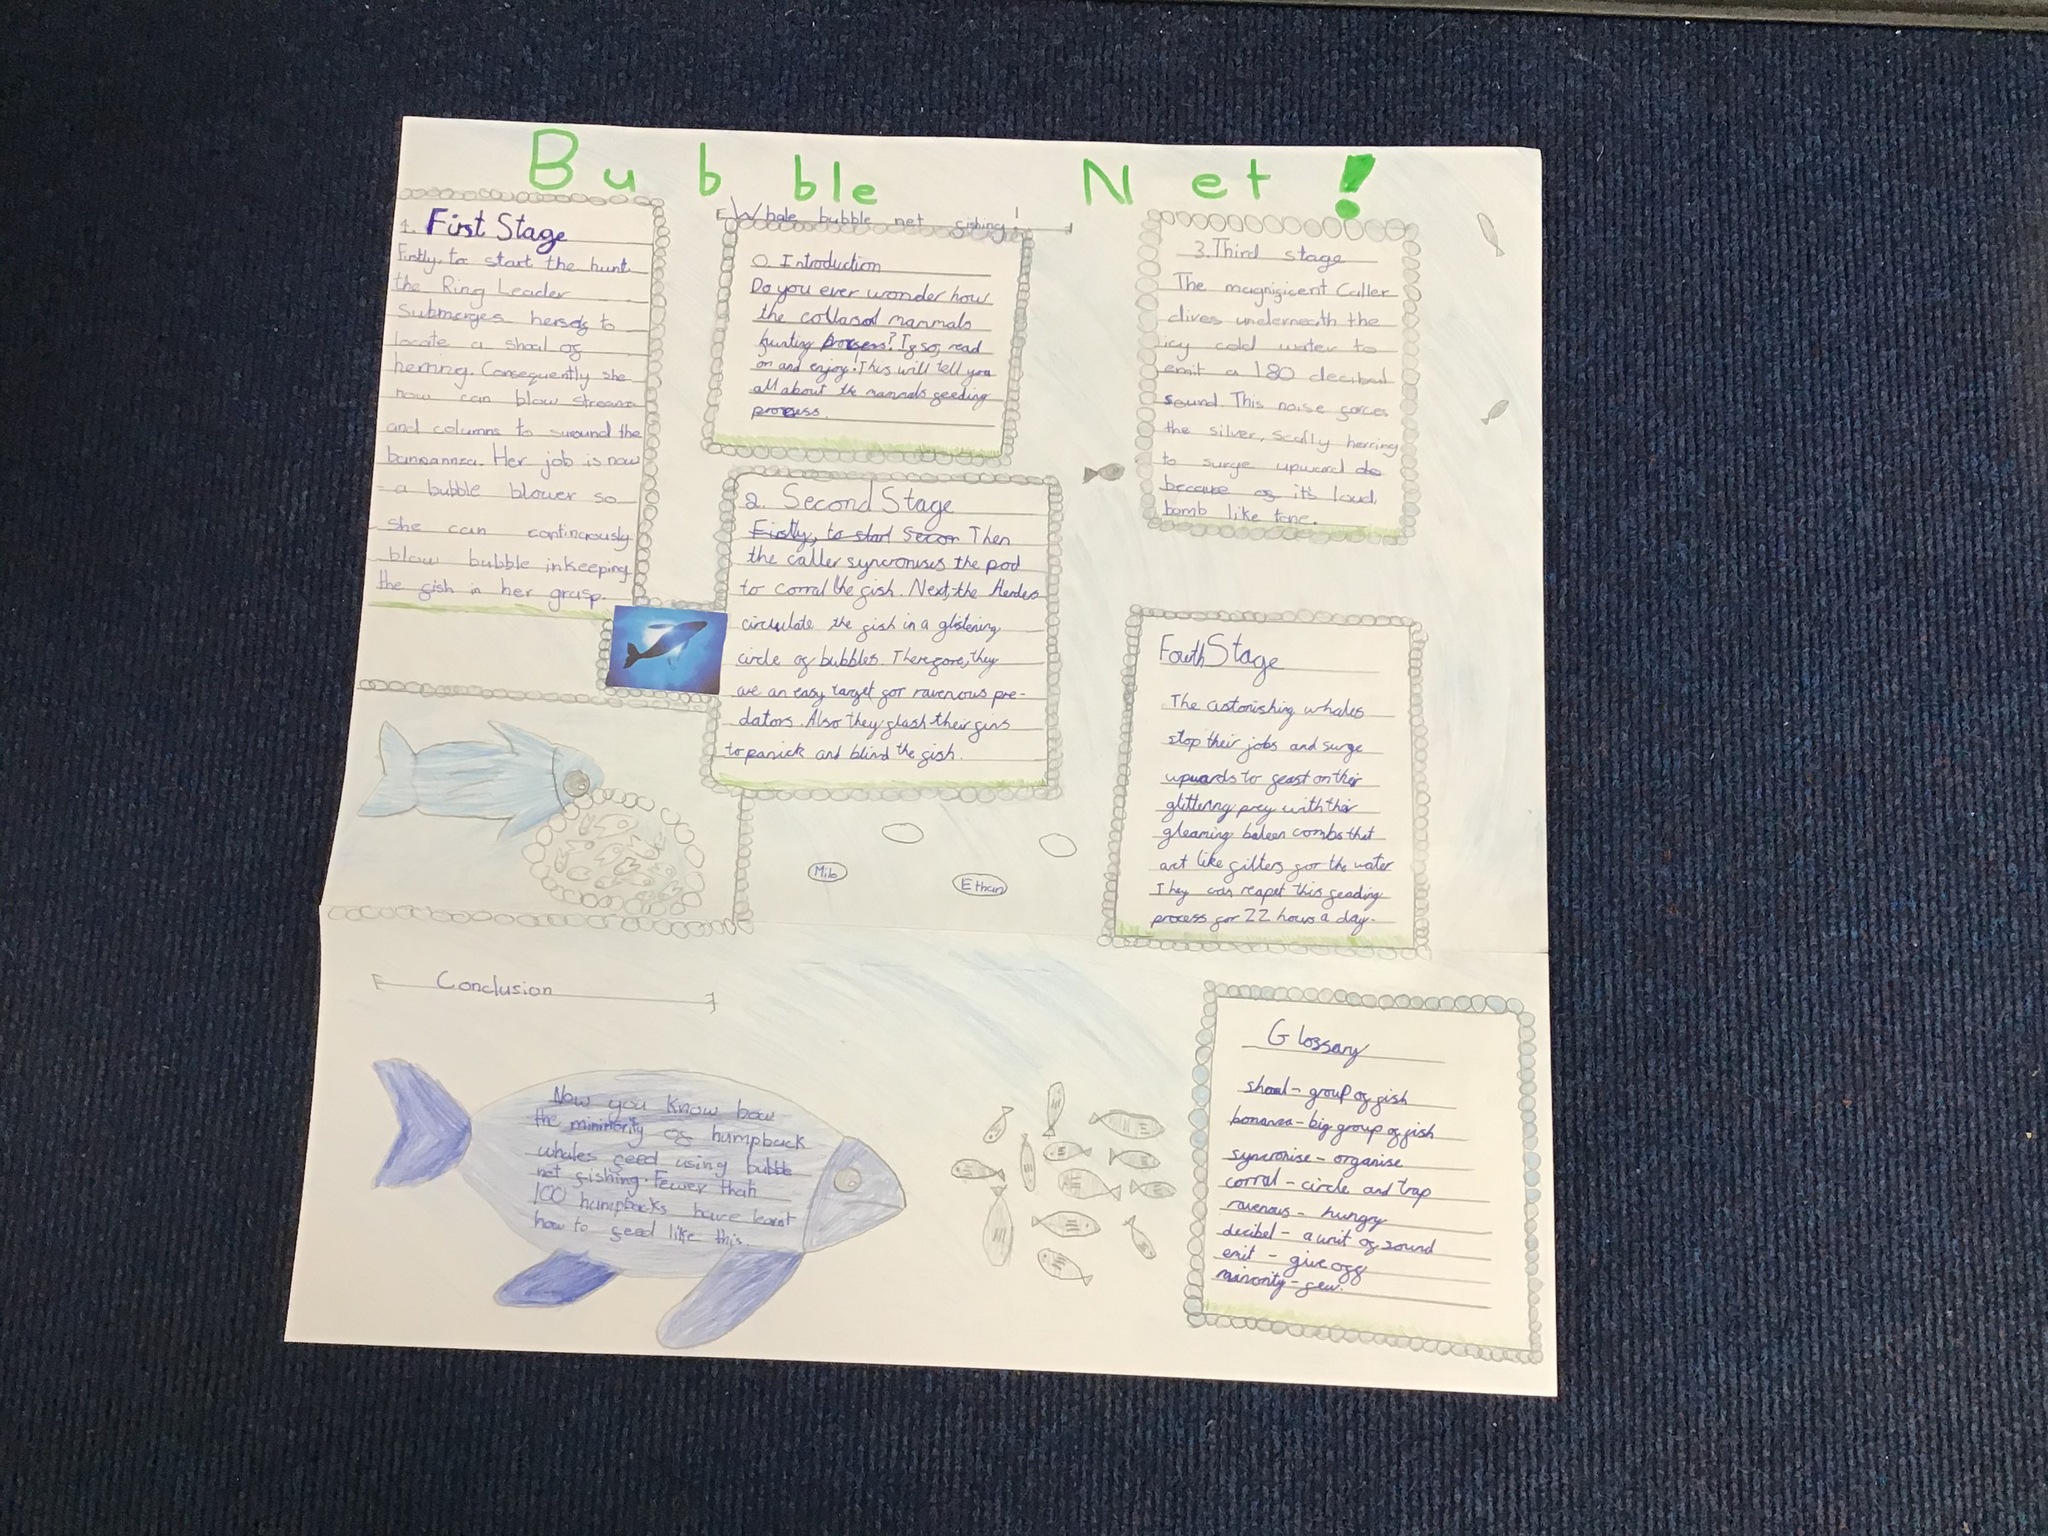 Bubble Net!
1. First Stage
Firstly, to start the hunt
the Ring Leader
submerges herself to
locate a shoal of
herring. Consequently she
now can blow streams
and columns to suround the
bannannza. Her job is now
a bubble blower so
she can continously
blow bubble inkeeping
the fish in her grasp.
Whale bubble net fishing!
0. Introduction
Do you ever wonder how
the collasol mammals
hunting process? If so, read
on and enjoy! This will tell you
all about the mammals feeding
process.
2. Second Stage
Firstly, to start Secon Then
the caller syncronises the pod
to corral the fish. Next, the Herders
circulate the fish in a glistening
circle of bubbles. Therefore, they
are an easy target for ravenous pre-
dators. Also they flash their fins
to panick and blind the fish.
3. Third stage
The magnificent Caller
dives underneath the
icy cold water to
emit a 180 decibel
sound. This noise forces
the silver, scally herring
to surge upward do
because of it's loud,
bomb like tone.
Fouth Stage
The astonishing whales
stop their jobs and surge
upwards to feast on their
glittering prey with their
gleaming baleen combs that
act like filters for the water
They can reapet this feading
process for 22 hours a day.
Milo
Ethan
Conclusion
Now you know how
the mininority of humpback
whales feed using bubble
net fishing. Fewer than
100 humpbacks have learnt
how to feed like this.
Glossary
shoal - group of fish
bonanza - big group of fish
syncronise - organise
corral - circle and trap
ravenous - hungry
decibel - a unit of sound
emit - give off
minority - few.